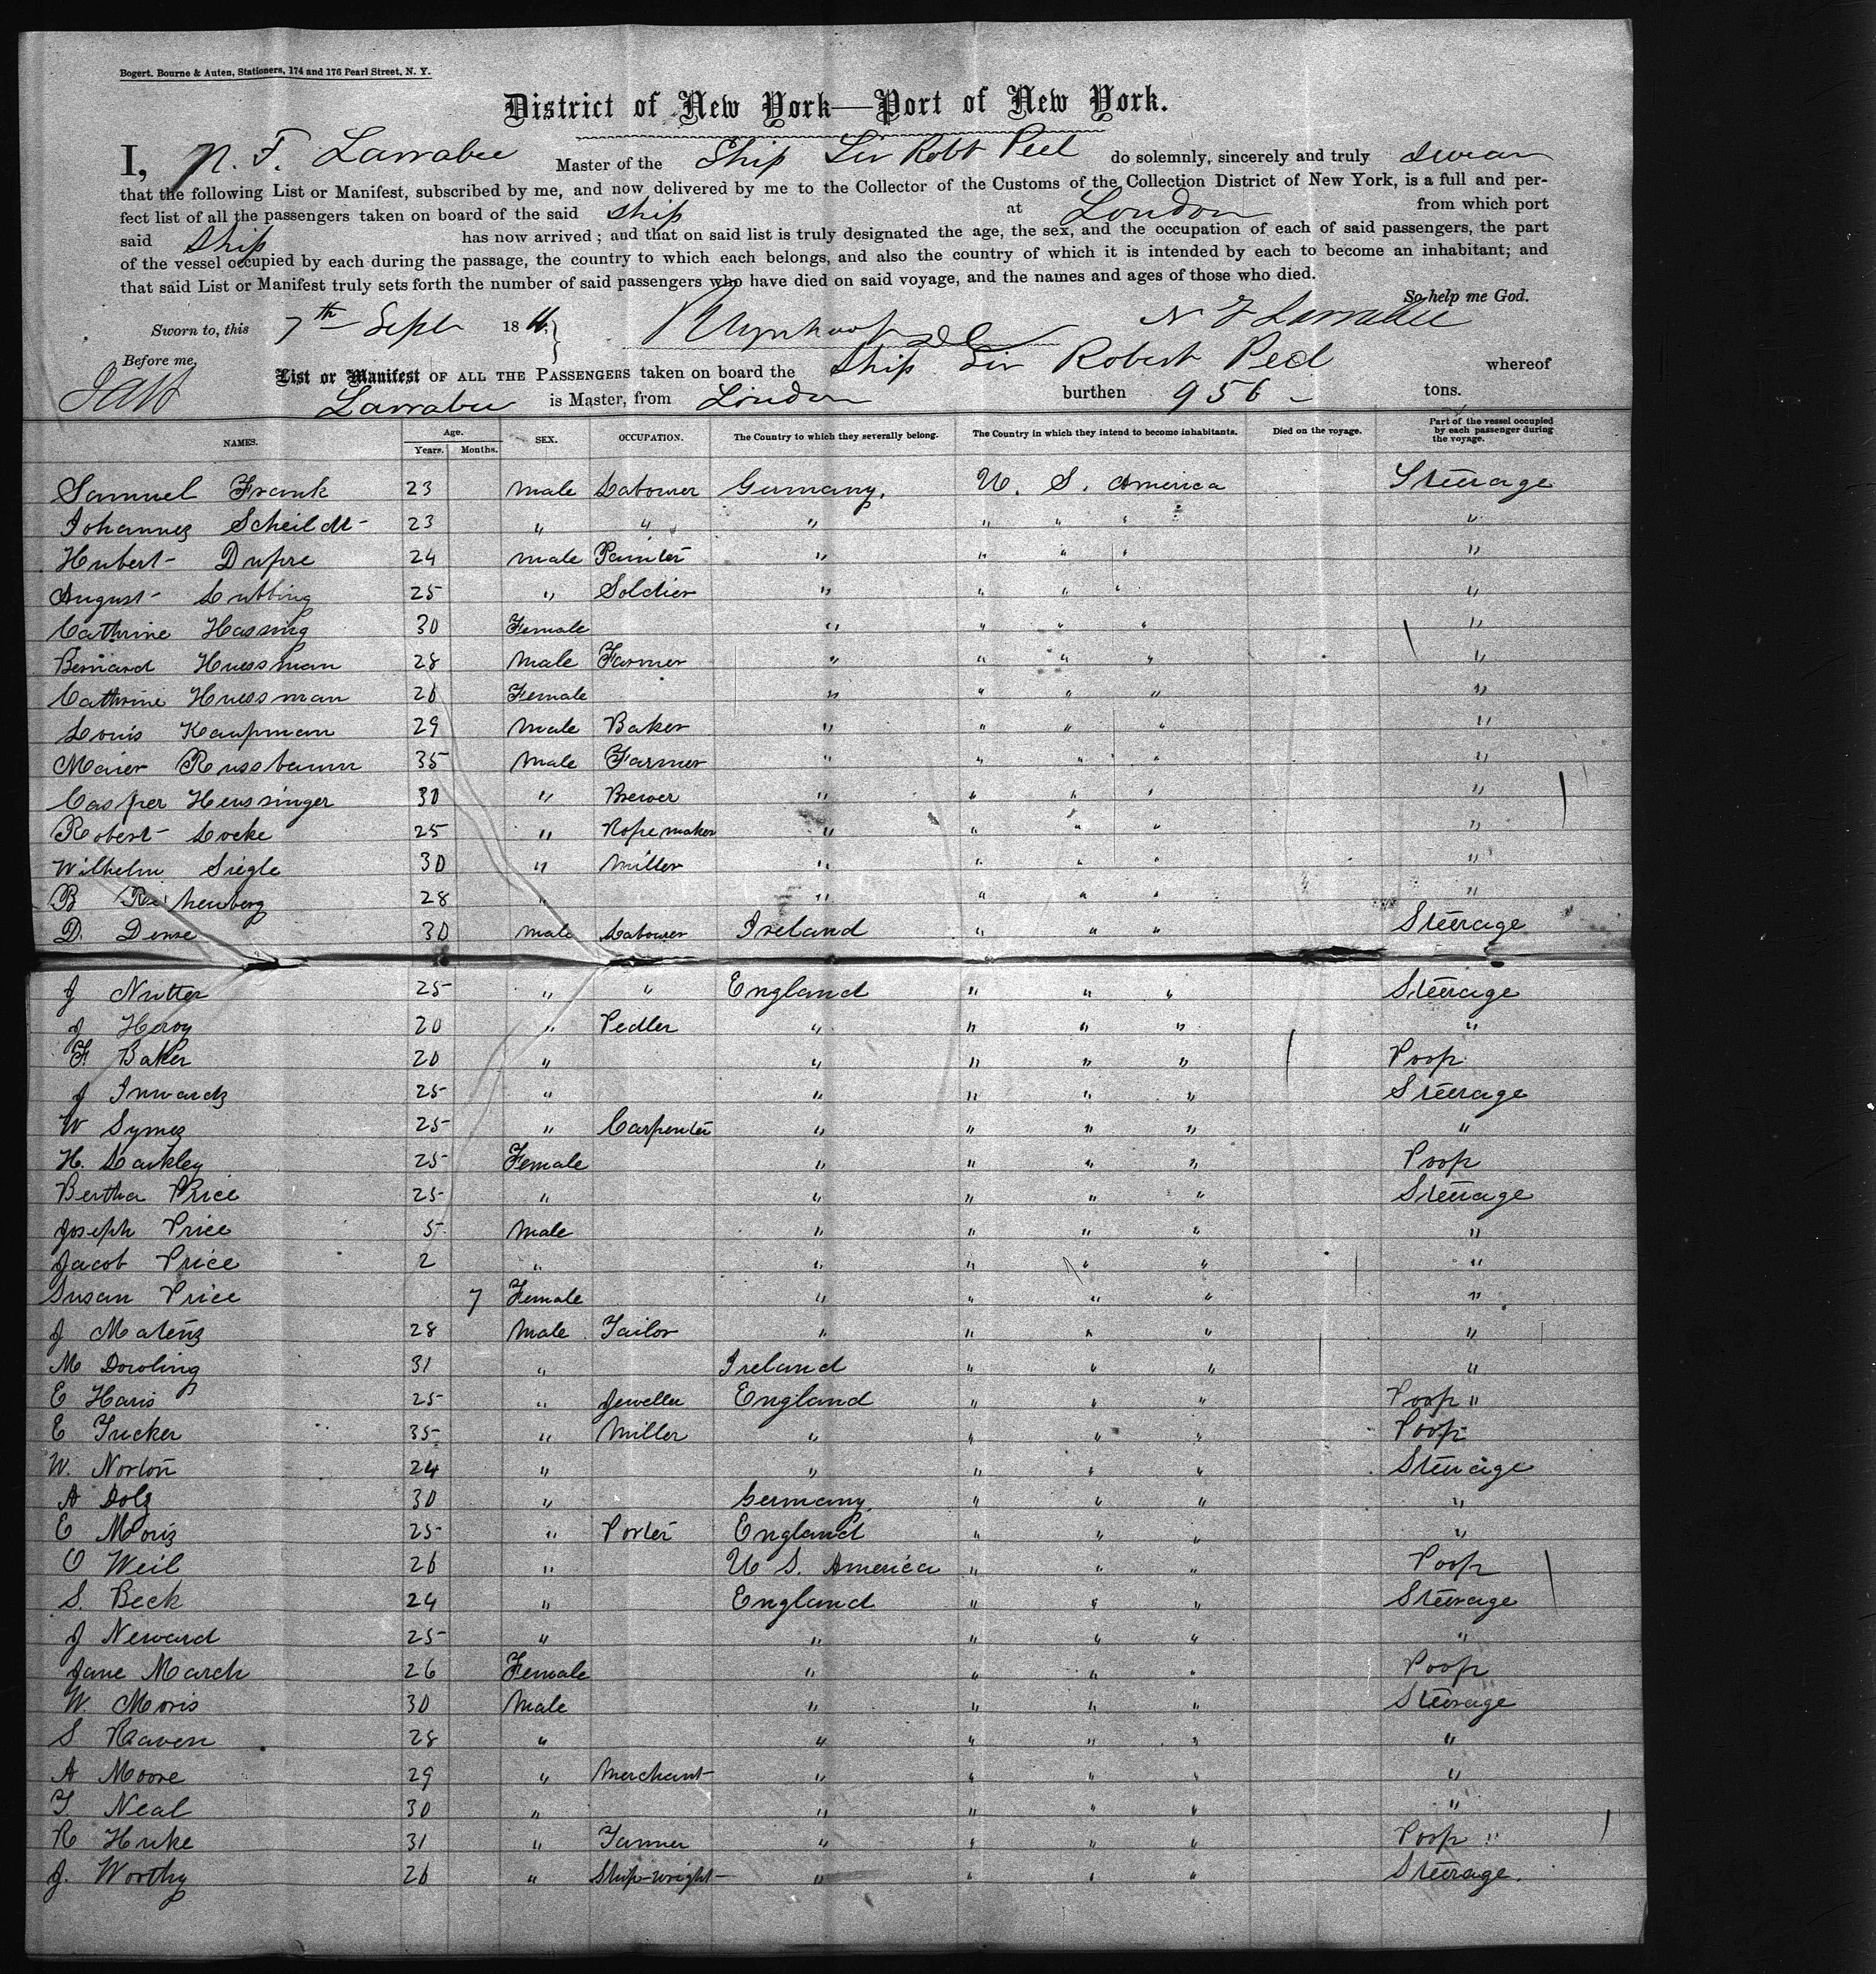 Bogert, Bourne & Auten, Stationers, 174 and 176 Pearl Street, N. Y.
District of New York—Port of New York.
I, N. F. Larrabee Master of the Ship Sir Robt Peel do solemnly, sincerely and truly swear
that the following List or Manifest, subscribed by me, and now delivered by me to the Collector of the Customs of the Collection District of New York, is a full and per-
fect list of all the passengers taken on board of the said ship at London from which port
said ship has now arrived; and that on said list is truly designated the age, the sex, and the occupation of each of said passengers, the part
of the vessel occupied by each during the passage, the country to which each belongs, and also the country of which it is intended by each to become an inhabitant; and
that said List or Manifest truly sets forth the number of said passengers who have died on said voyage, and the names and ages of those who died.
So help me God.
Sworn to, this 7th Sept 18 N F Larrabee
Before me,
List or Manifest OF ALL THE PASSENGERS taken on board the Ship Sir Robert Peel whereof
Larrabee is Master, from London burthen 956 tons.
NAMES. Age. Years. Months. SEX. OCCUPATION. The Country to which they severally belong. The Country in which they intend to become inhabitants. Died on the voyage. Part of the vessel occupied by each passenger during the voyage.
Samuel Frank 23 Male Labourer Germany, U. S. America Steerage
Johannes Scheildt 23 " " " " " " "
Hubert Dupre 24 male Painter " " " " "
August Lubbing 25 " Soldier " " " " "
Cathrine Hassing 30 Female " " " " "
Bernard Huessman 28 Male Farmer " " " " "
Cathrine Huessman 26 Female " " " " "
Louis Kaupman 29 Male Baker " " " " "
Maier Russbaum 35 Male Farmer " " " " "
Casper Heussinger 30 " Brewer " " " " "
Robert Locke 25 " Rope maker " " " " "
Wilhelm Siegle 30 " Miller " " " " "
B 28 " " " " " "
D. Dense 30 male Labourer Ireland " " " Steerage
J Nutter 25 " " England " " " Steerage
J Heroy 20 " Pedler " " " " "
F. Baker 20 " " " " " Poop
J Inwards 25 " " " " " Steerage
W Symes 25 " Carpenter " " " " "
H. Larkley 25 Female " " " " Poop
Bertha Price 25 " " " " " Steerage
Joseph Price 5 Male " " " " "
Jacob Price 2 " " " " " "
Susan Price 7 Female " " " " "
J Matenz 28 Male Tailor " " " " "
M Dowling 31 " Ireland " " " "
E Haris 25 " Jeweller England " " " Poop "
E Tucker 35 " Miller " " " " Poop
W. Norton 24 " " " " " Steerage
A Dolz 30 " Germany, " " " "
E Moriz 25 " Porter England " " " "
O Weil 26 " U S. America " " " Poop
S. Beck 24 " England " " " Steerage
J Neward 25 " " " " " "
Jane March 26 Female " " " " Poop
W. Moris 30 Male " " " " Steerage
S Raven 28 " " " " " "
A Moore 29 " Merchant " " " " "
T Neal 30 " " " " " "
R Huke 31 " Tanner " " " " Poop "
J. Worthy 26 " Ship-wright " " " " Steerage.